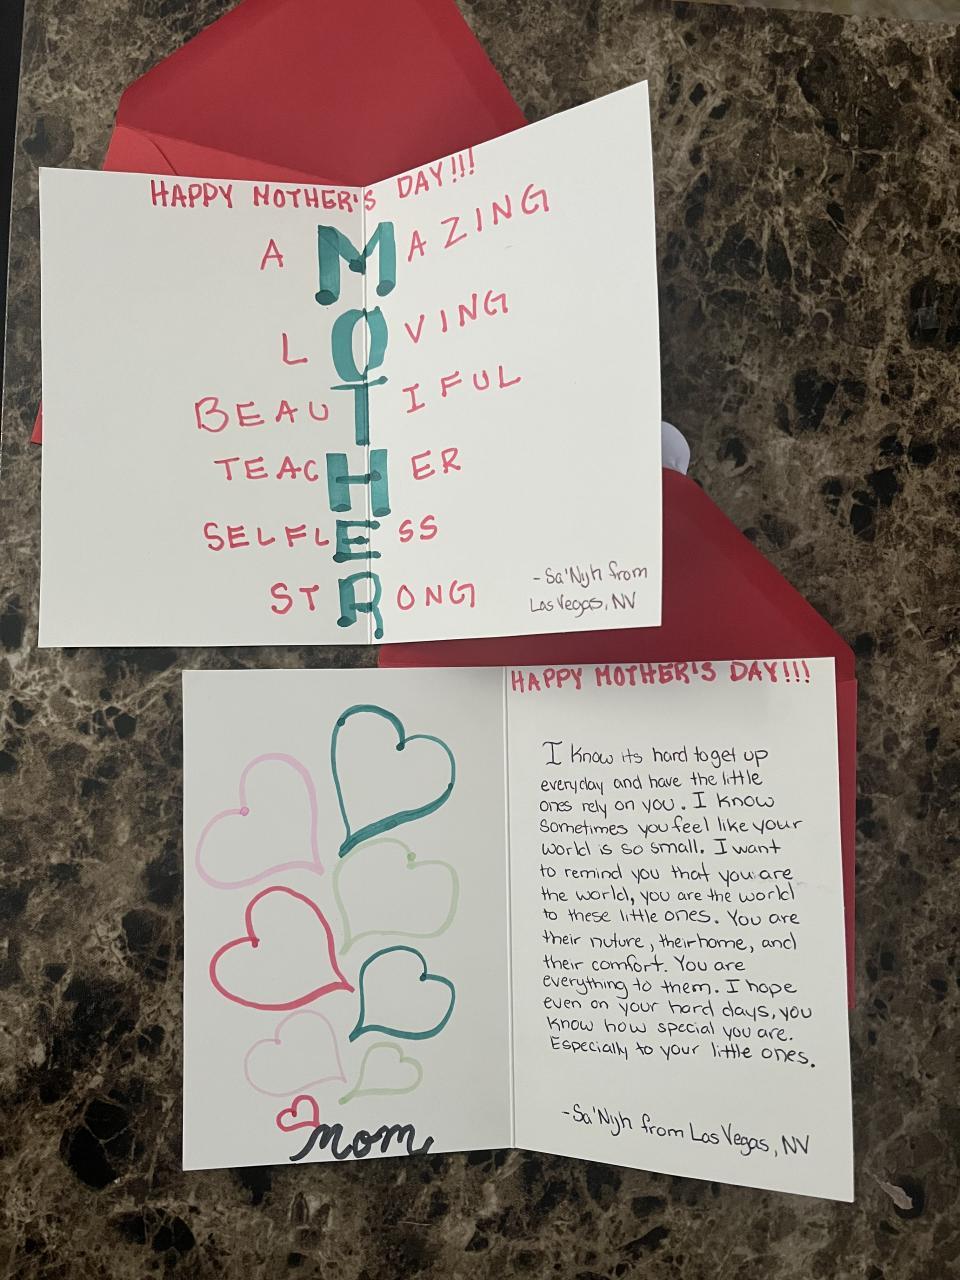 HAPPY MOTHER'S DAY!!!
AMAZING
LOVING
BEAUTIFUL
TEACHER
SELFLESS
STRONG
-Sa'Nyh from
Las Vegas, NV
HAPPY MOTHER'S DAY!!!
I know its hard to get up
everyday and have the little
ones rely on you. I know
Sometimes you feel like your
world is so small. I want
to remind you that you are
the world, you are the world
to these little ones. You are
their nuture, their home, and
their comfort. You are
everything to them. I hope
even on your hard days, you
know how special you are.
Especially to your little ones.
-Sa'Nyh from Las Vegas, NV
Mom